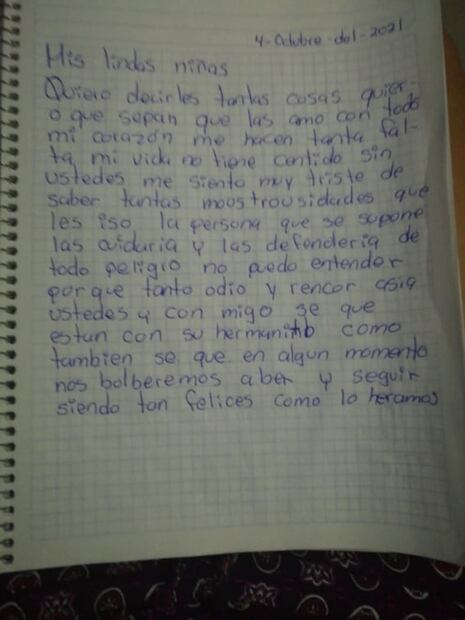 4-Octubre-del-2021
Mis lindas niñas
Quiero decirles tantas cosas quier-
o que sepan que las amo con todo
mi corazón me hacen tanta fal-
ta mi vida no tiene centido sin
ustedes me siento muy triste de
saber tantas moustrousidades que
les iso la persona que se supone
las cuidaria y las defenderia de
todo peligro no puedo entender
porque tanto odio y rencor asia
ustedes y con migo se que
estan con su hermanito como
tambien se que en algun momento
nos bolberemos aber y seguir
siendo tan felices como lo heramos